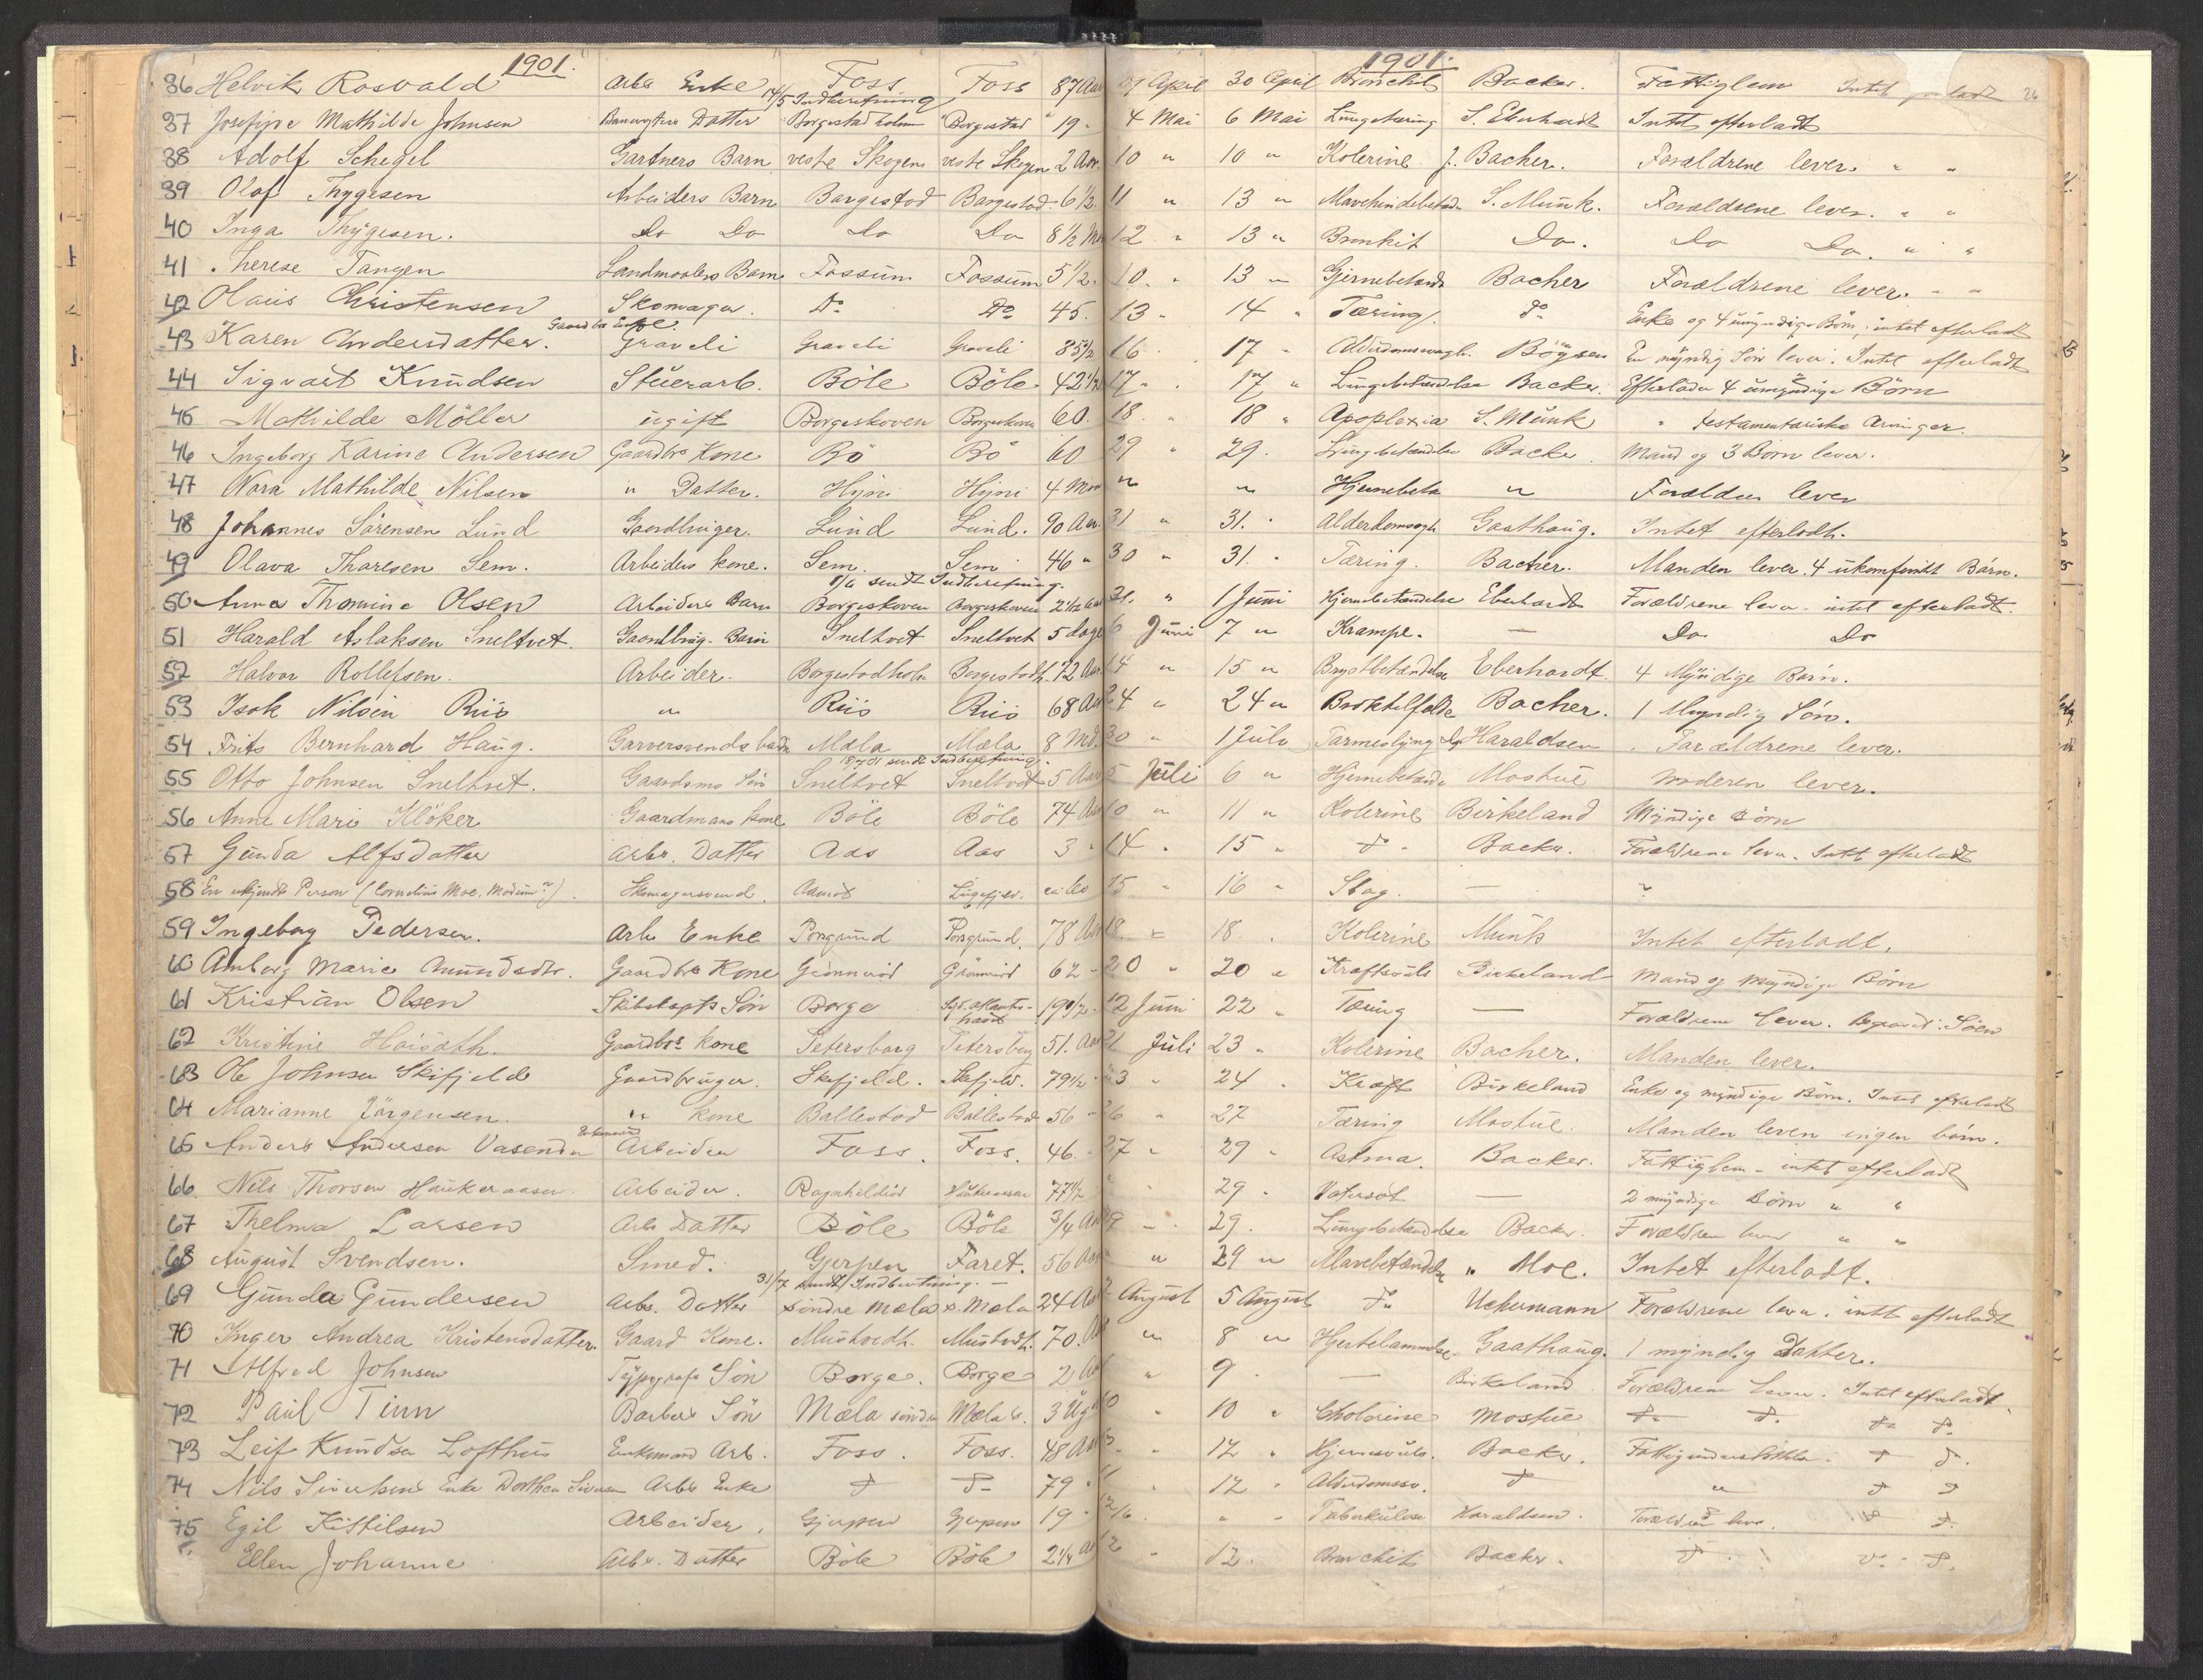 1901. 1901. 26
36 Helvik Rosvald Arbs Enke Foss Foss 87 Aar 29 April 30 April Bronchit Backer. Fattiglem Intet
14/5 Indberetning
37 Josefine Mathilde Johnsen Banevogters Datter Borgestadholmen Borgestad 19 4 Mai 6 Mai Lungetæring S. Eberhardt Intet efterladt
38 Adolf Schegel Gartners Barn vestre Skogen vestre Skogen 2 Aar 10 " 10 " Kolerine J. Backer. Forældrene lever. " "
39 Olaf Thygesen Arbeiders Barn Borgestad Borgestad 6 1/2. 11 " 13 " S. Munk. Forældrene lever. " "
40 Inga Thygesen. Do Do Do Do 8 1/2 Md 12 " 13 " Bronkit Do. Do Do. " "
41 Therese Tangen Landmaalers Barn Fossum Fossum 5 1/2. 10. " 13 " Hjernebetænd Backer Forældrene lever. " "
42 Olaus Christensen Skomager. Do Do 45. 13 " 14 " Tæring. Do Enke og 4 umyndige Børn, intet efterladt
43 Karen Andersdatter. Gaardbr Enke. Graveli Graveli Graveli 85 1/2 16 " 17 " Alderdomssvagh. Bögsen En myndig Søn lever. Intet efterladt
44 Sigvart Knudsen Stuerarb. Böle Böle 42 1/2 17 " 17 " Lungebetændelse Backer. Efterlader 4 umyndige Börn
45 Mathilde Möller ugift Borgeskoven Borgeskoven 60. 18 " 18 " Apoplexia S. Munk " testamentariske Arvinger.
46 Ingeborg Karine Andersen Gaardbrs Kone Bö Bö 60 29 " 29. Lungebetændelse Backer Mand og 3 Børn lever.
47 Nora Mathilde Nilsen " Datter. Hyni Hyni 4 Mdr " " Hjernebetæ " Forældre lever
48 Johannes Sörensen Lund Gaardbruger. Lund Lund. 90 Aar. 31 " 31. " Alderdomssvgh Gaathaug. Intet efterladt.
49 Olava Thoresen Sem. Arbeiders kone. Sem. Sem 46 " 30 " 31. " Tæring. Backer. Manden lever. 4 ukomfimert Børn.
1/6 sendt Indberetning.
50 Anna Thomine Olsen Arbeiders Barn Borgeskoven Borgeskoven 2 1/12 Aar 31. " 1 Juni Hjernebetændelse Eberhardt Forældrene lever. intet efterladt.
51 Harald Aslaksen Sneltvet. Gaardbrug. Barn Sneltvet Sneltvet 5 dage 6 Juni 7 " Krampe. — Do Do
52 Halvor Rollefsen. Arbeider. Borgestadholm Borgestadh. 72 Aar 14 " 15 " Brystbetændelse Eberhardt. 4 Myndige Børn.
53 Isak Nilsen Riis " Riis Riis 68 Aar 24 " 24 " Broktilfælde Backer. 1 Myndig Søn.
54 Frits Bernhard Haug. Garversvends barn Mæla Mæla 8 Md. 30 " 1 Julu Haraldsen Forældrene lever.
18/7 01 sendt Indberetning.
55 Otto Johnsen Sneltvet. Gaardsms Søn Sneltvet Sneltvet 5 Aar 5 Juli 6 " Hjernebetænde Mostue Moderen lever.
56 Anne Marie Klöker Gaardmans kone Böle Böle 74 Aar 10 " 11 " Kolerine Birkeland Myndige Børn
57 Gunda Alfsdatter Arbs. Datter Aas Aas 3 " 14 " 15 " Do Backer. Forældrene lever. Intet efterladt
58 En ukjendt Person (Cornelius Moe, Modum?) Skomagersvend. Lugefjeld. ca: 60 15 " 16 " Slag. — "
59 Ingeborg Pedersen. Arb Enke Porsgrund Porsgrund. 78 Aar 18 " 18. " Kolerine Munk Intet efterladt.
60 Amborg Marie Amundsdtr. Gaardbrs Kone Grönnerød Grönnerød 62 20 " 20 " Kræftsvuls Birkeland Mand og myndige Børn
61 Kristian Olsen Skibskapts Søn Borge Syd. Atlanterhavet 19 1/2 12 Juni 22 " Tæring — Forældrene lever. Begravet i Søen
62 Kristine Haisath. Gaardbrs kone Petersborg Petersborg 51. Aar 21 Juli 23 " Kolerine Backer. Manden lever.
63 Ole Johnsen Skifjeld Gaardbruger. Skifjeld. Skifjeld. 79 1/2 23 " 24 " Kræft Birkeland Enke og myndige Børn. Intet efterladt
64 Marianne Jörgensen. " kone Ballestad Ballestad 56 26 " 27 Tæring Mostue. Manden leven ingen børn.
65 Anders Andersen Vasenden Enkemand Arbeider Foss. Foss. 46. 27 " 29 " Astma. Backer. Fattiglem - intet efterladt
66 Nils Thorsen Haukeraasen Arbeider. Ragnhildrød Haukeraasen 77 1/2 " 29 " Vatersot — 2 myndige Børn " "
67 Thelma Larsen Arbs Datter Böle Böle 3/4 Aar 29 " 29. Lungebetændelse Backer. Forældrene lever " "
68 August Svendsen. Smed. Gjerpen Faret. 56 Aar " " 29 " Mavebetændelse " Moe. Intet efterladt.
31/7 sendt Indberetning. —
69 Gunda Gundersen Arbs. Datter Søndre Mæla s. Mæla 24 Aar 2 August 5 August Do Uchermann Forældrene lever. intet efterladt
70 Inger Andrea Kristensdatter. Gaard Kone. Mustvedt. Mustvedt. 70. " 8 " Hjertelammelse Gaathaug. 1 myndig Datter.
71 Alfred Johnsen Typografs Søn Borge. Borge 2 Aar " 9 " — Birkeland Forældrene lever. Intet efterladt.
72 Paul Tinn Barbers Søn Mæla søndre Mæla s. 3 Uger 10 " 10 " Cholerine Mostue Do Do Do Do
73 Leif Knudsen Lofthus Enkemand Arb. Foss. Foss. 48 Aar " 12 " Hjernesvuls. Backer. Fattigunderstøttelse. Do Do
74 Nils Sivertsens Enke Dorthea Siversen Arbs Enke Do Do 79 11 " 12 " Alderdomssv. Do " Do Do
75 Egil Kittilsen Arbeider. Gjerpen Gjerpen 19 12/6 " " Tuberkulose Haraldsen. Forældrene leve. Do Do
Ellen Johanne Arbs. Datter Böle Böle 2 1/4 12 " 12. Bronchit Backer. Do Do Do